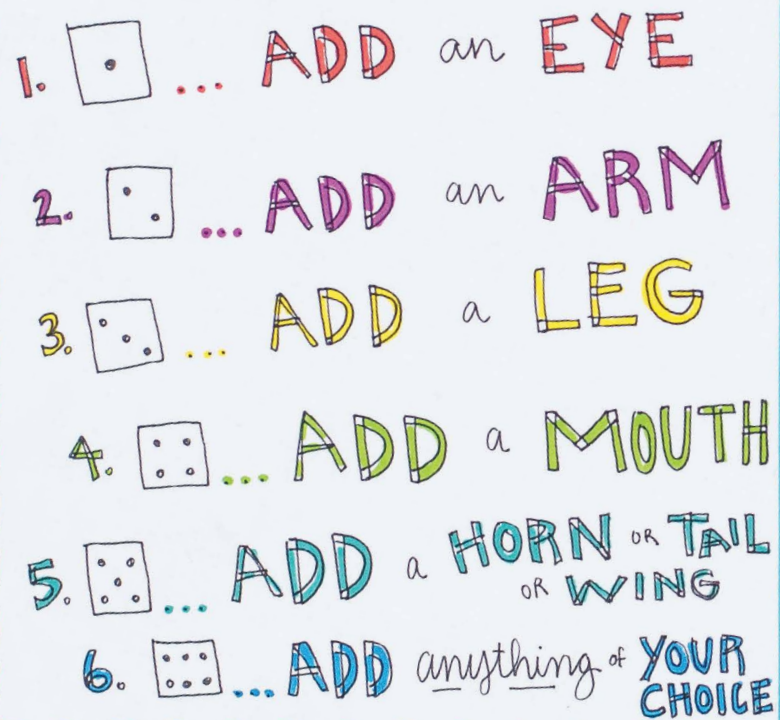 1. ... ADD an EYE
2. ... ADD an ARM
3. ... ADD a LEG
4. ... ADD a MOUTH
5. ... ADD a HORN OR TAIL
OR WING
6. ... ADD anything of YOUR
CHOICE